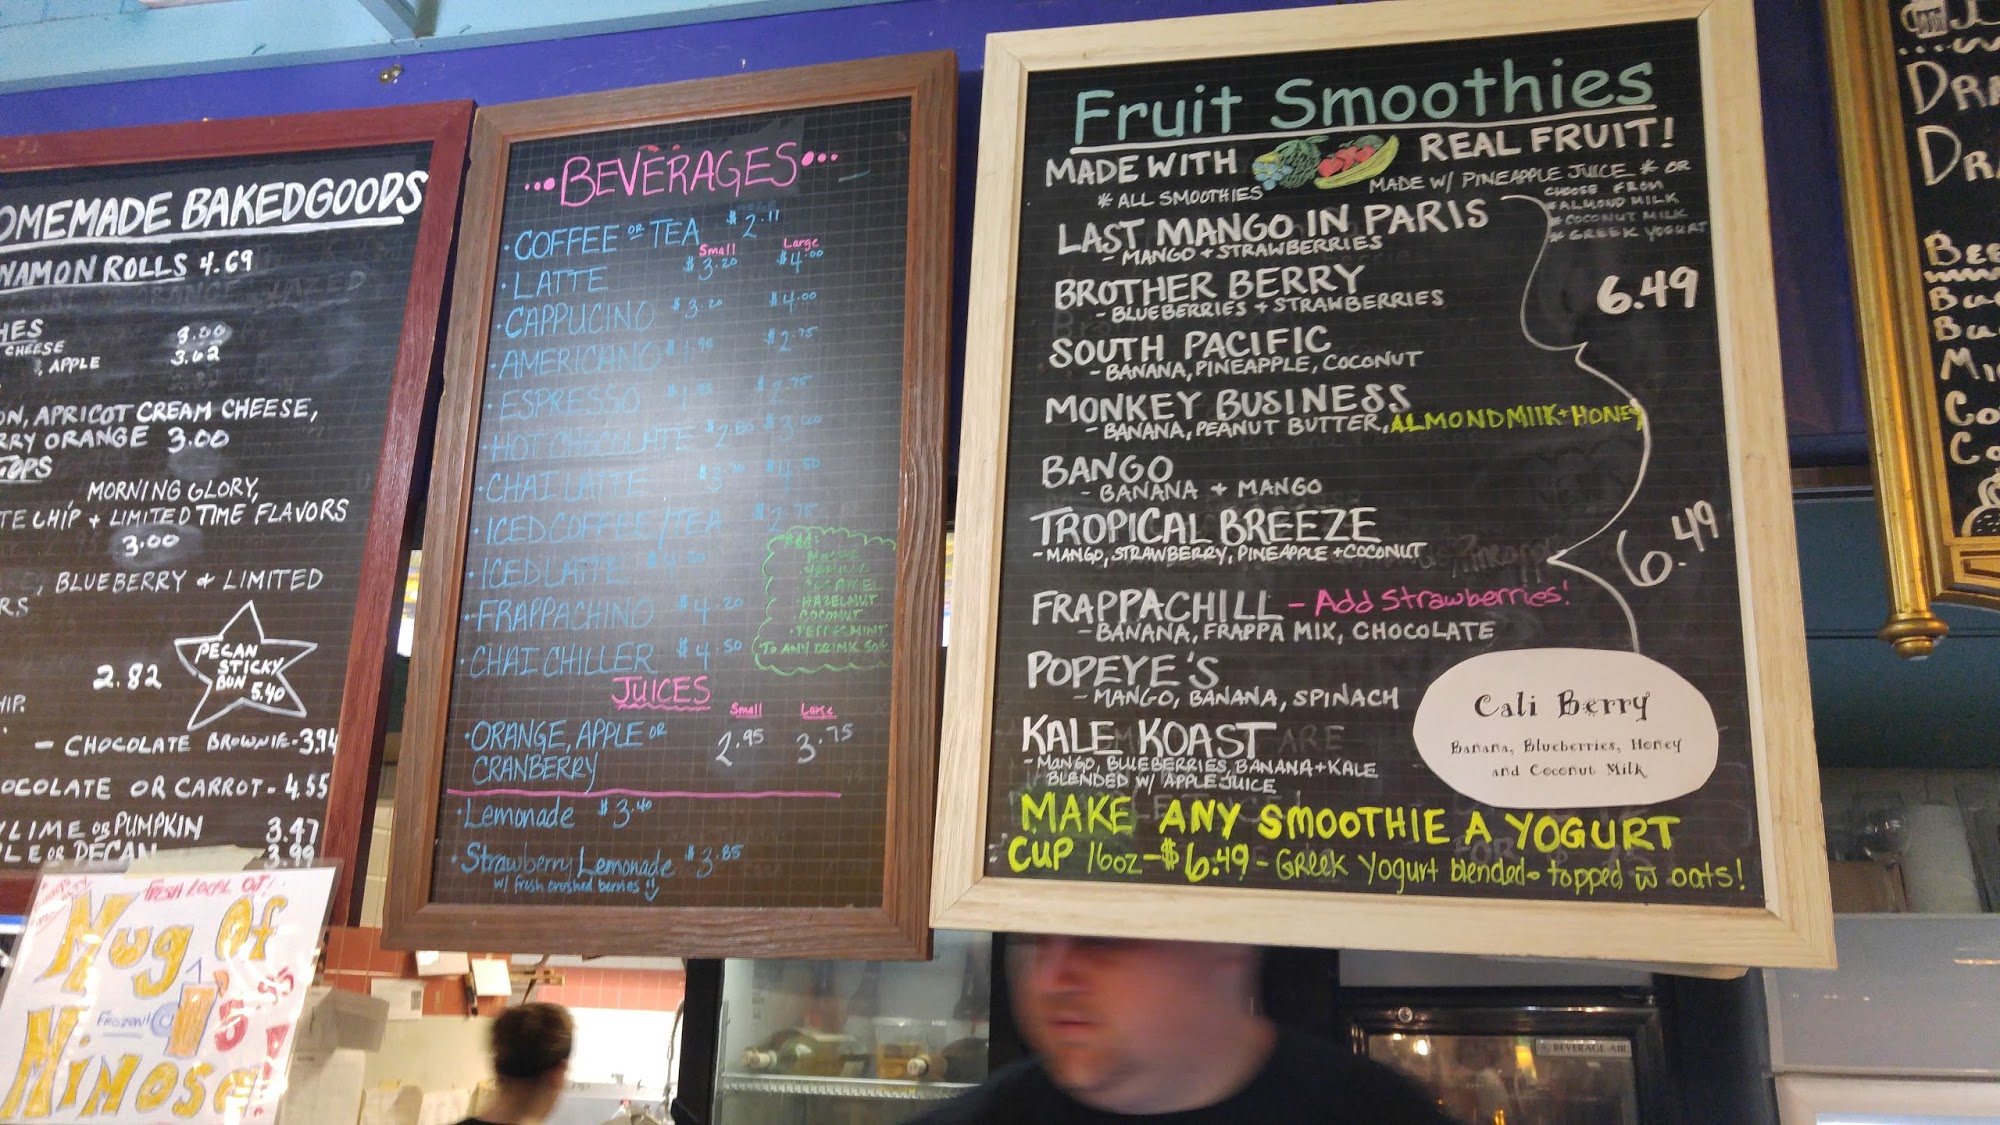 OMEMADE BAKEDGOODS
NAMON ROLLS 4.69
HES 3.00
CHEESE
, APPLE 3.62
ON, APRICOT CREAM CHEESE,
RRY ORANGE 3.00
TOPS
MORNING GLORY,
TE CHIP + LIMITED TIME FLAVORS
3.00
, BLUEBERRY + LIMITED
RS
PECAN
STICKY
BUN 5.40
2.82
HIP.
- CHOCOLATE BROWNIE - 3.94
OCOLATE OR CARROT - 4.55
Y LIME OR PUMPKIN 3.47
PLE OR PECAN 3.99
FRESH LOCAL OJ!
Mug Of
FROZEN!
5.95
Mimosa
...BEVERAGES...
• COFFEE OR TEA $2.11
Small Large
• LATTE $3.20 $4.00
• CAPPUCINO $3.20 $4.00
• AMERICANO $1.95 $2.75
• ESPRESSO $1.95 $2.75
• HOT CHOCOLATE $2.80 $3.00
• CHAI LATTE $4.50
• ICED COFFEE/TEA $2.75
• ICED LATTE
• FRAPPACHINO $4.20
• CHAI CHILLER $4.50
Add:
VANILLA
CARAMEL
HAZELNUT
COCONUT
PEPPERMINT
TO ANY DRINK 50¢
JUICES
Small Large
• ORANGE, APPLE OR
CRANBERRY 2.95 3.75
• Lemonade $3.40
• Strawberry Lemonade $3.85
w/ fresh crushed berries
Fruit Smoothies
MADE WITH REAL FRUIT!
* ALL SMOOTHIES MADE W/ PINEAPPLE JUICE * OR
CHOOSE FROM
* ALMOND MILK
* COCONUT MILK
* GREEK YOGURT
LAST MANGO IN PARIS
- MANGO + STRAWBERRIES
BROTHER BERRY 6.49
- BLUEBERRIES + STRAWBERRIES
SOUTH PACIFIC
- BANANA, PINEAPPLE, COCONUT
MONKEY BUSINESS
- BANANA, PEANUT BUTTER, ALMOND MILK + HONEY
BANGO
- BANANA + MANGO
TROPICAL BREEZE 6.49
- MANGO, STRAWBERRY, PINEAPPLE + COCONUT
FRAPPACHILL - Add Strawberries!
- BANANA, FRAPPA MIX, CHOCOLATE
POPEYE'S
- MANGO, BANANA, SPINACH
KALE KOAST
- MANGO, BLUEBERRIES, BANANA + KALE
BLENDED W/ APPLE JUICE
Cali Berry
Banana, Blueberries, Honey
and Coconut Milk
MAKE ANY SMOOTHIE A YOGURT
CUP 16oz - $6.49 - Greek Yogurt blended - topped w oats!
DRA
DRA
BEE
BU
BU
MI
CO
CO
BEVERAGE-AIR